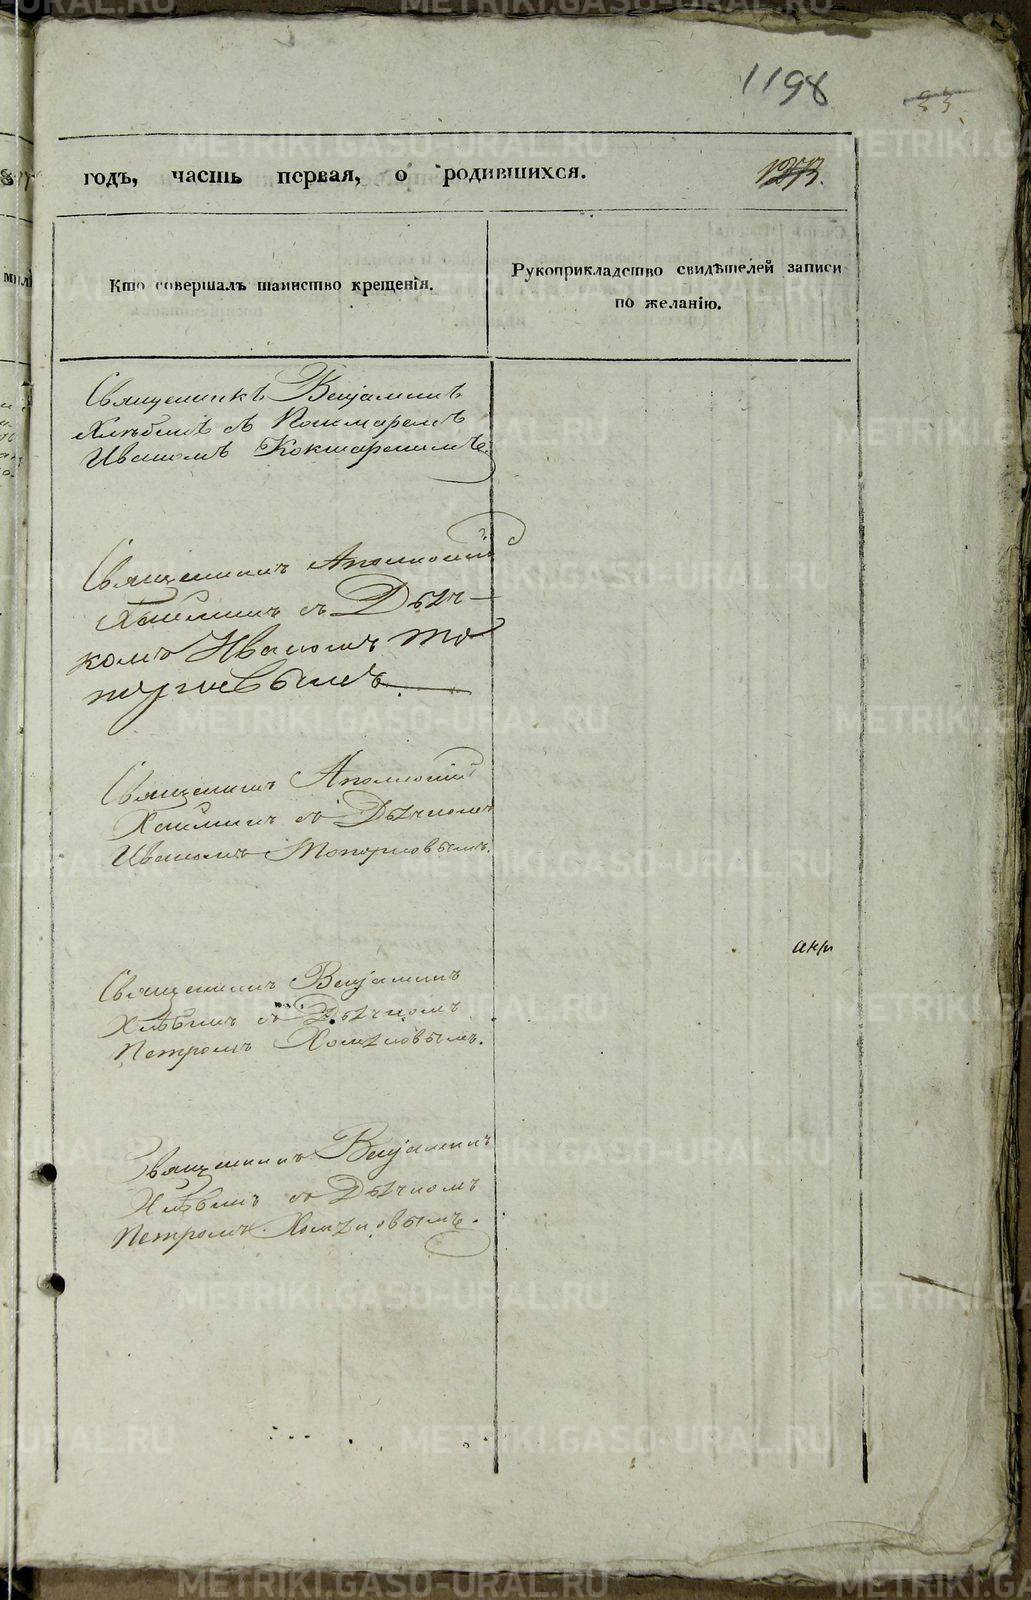 1198
годъ, часть первая, о родившихся.
Кто совершалъ таинство крещенія.
Рукоприкладство свидѣтелей записи
по желанію.
Священникъ Веніаминъ
Хлѣбинъ съ Пономаремъ
Иваномъ Кокшарскимъ.
Священникъ Аполлосій
Хаимпинъ съ Дьяч-
комъ Иваномъ То
порковымъ.
Священникъ Аполлосій
съ Дьячкомъ
Иваномъ Топорковымъ.
акт
Священникъ Веніаминъ
Хлѣбинъ съ Дьячкомъ
Петромъ Хомяковымъ.
Священникъ Веніаминъ
Хлѣбинъ съ Дьячкомъ
Петромъ Хомяковымъ.
METRIKI.GASO-URAL.RU